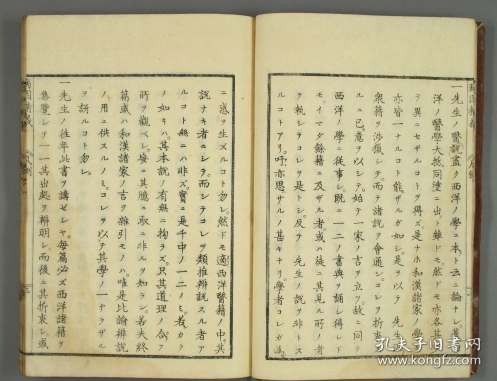 一先生ノ醫説盡ク西洋ノ學ニ本ト云ニ論ナシ蓋
洋ノ醫學大抵同塗ニ出ツ然ドモ亦各其
ヲ異ニセザルコトヲ得ズ是ナホ和漢諸家ノ學
亦皆一ナルコト能ザルガ如シ是ヲ以テ先生
衆籍ヲ渉獵シテ而シテ諸説ノ會通シコレヲ折
ルニ已意ヲ以シテ始テ一家ノ言ヲ立ツ故ニ同ク
西洋ノ學ニ從事シ既ニ一二ノ書典ヲ誦シ得レド
モイマダ餘籍ニ及ザル者或ハ徒ニ其見ル所ノ者
ヲ執シテコレヲ是トシ反テ先生ノ説ヲ非トス
ルコトアリ吁亦思ザルノ甚キナリ學者コレガ爲
ニ惑ヲ生ズルコト勿レ然ドモ適西洋醫籍ノ中其
説ナキ者ニシテ而シテコレヲ類推辨説スル者ア
ルコト無ニハ非ズ實ニ是千中ノ一二ノミ
ノ如キハ其本説ノ有無ニ拘ラズ只其道理ノ
所ヲ觀ベシ
籍或ハ和漢諸家ノ言ヲ雜引モノハ唯是比論辨説
ノ用ニ供スルノミコレヲ以テ其學ノ一ナラザル
ヲ訝ルコト勿レ
一先生ノ往年此書ヲ講ゼシヤ每篇必ズ西洋諸籍ヲ
集覽シテ一一其出處ヲ辨明シ而後ニ其折衷シ或
孔夫子旧书网
www.kongfz.com